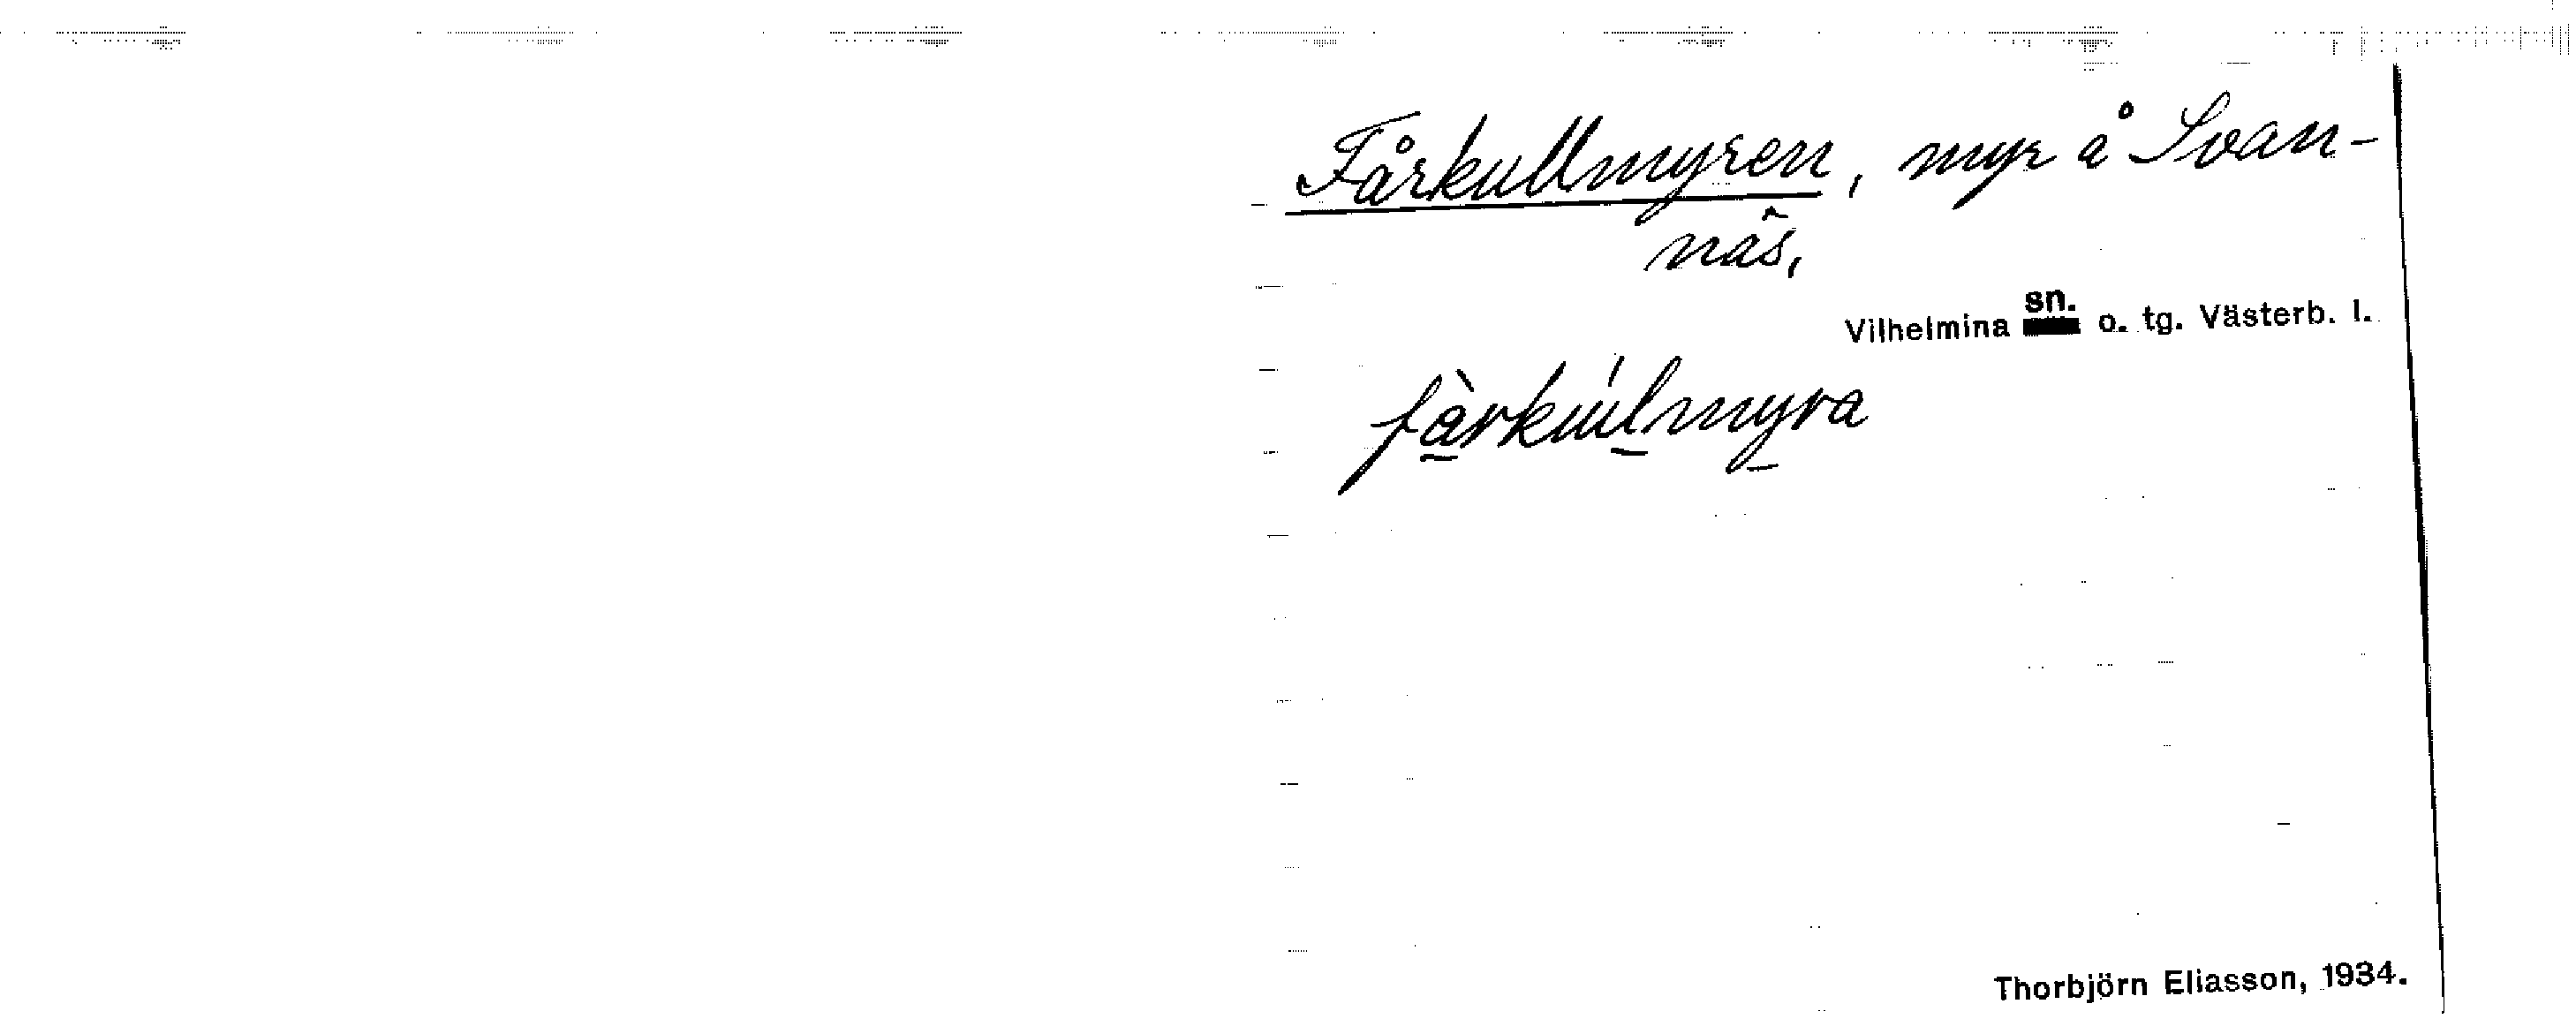 Fårkullmyren, myr å Svan-
näs,
Vilhelmina sn. o. tg. Västerb. l.
fàrkúlmyra
Thorbjörn Eliasson, 1934.